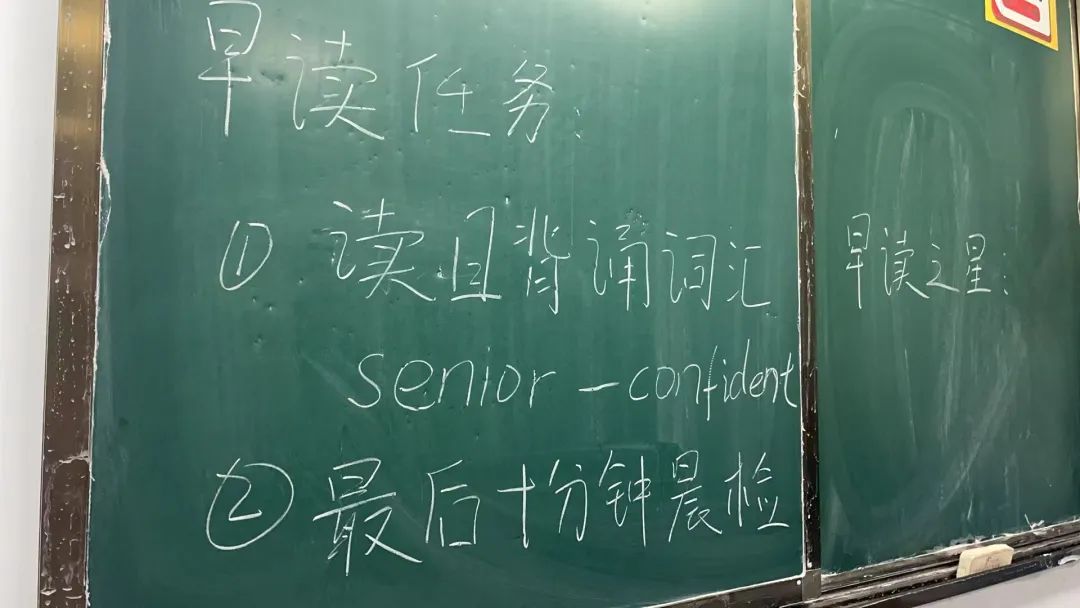 早读任务:
① 读且背诵词汇
senior - confident
② 最后十分钟晨检
早读之星: